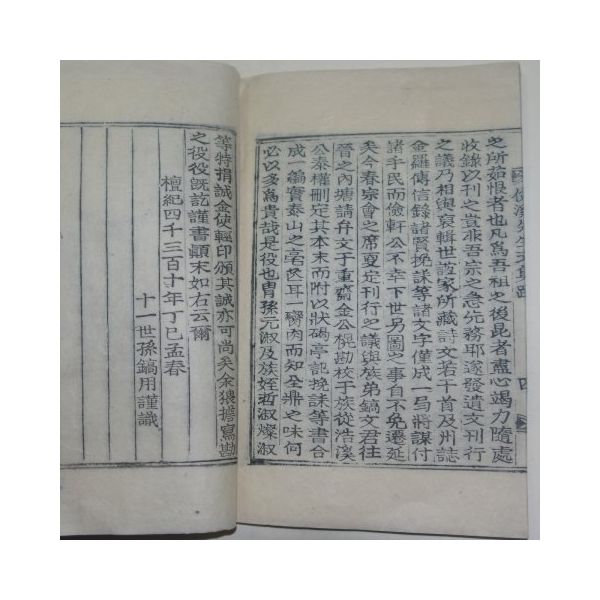 之所茹恨者也凡爲吾祖之後昆者盡心竭力隨處
收錄以刊之豈非吾宗之急先務耶遂發遺文刊行
之議乃相與裒輯世諠家所藏詩文若干首及州誌
金羅傳信錄諸賢挽誄等諸文字僅成一局將謀付
諸手民而儉軒公不幸下世另圖之事自不免遷延
矣今春宗會之席更定刊行之議與族弟鎬文君往
晉之內塘請弁文于重齋金公榥勘校于族從浩溪
公秦權刪定其本末而附以狀碣亭記挽誄等書合
成一編實泰山之毫芒耳一臠肉而知全鼎之味何
必以多爲貴哉是役也胄孫元淑及族姪哲淑燦淑
等特捐誠金使輕印頒其誠亦可尚矣余猥擔寫勘
之役役旣訖謹書顚末如右云爾
檀紀四千三百十年丁巳孟春
十一世孫鎬用謹識